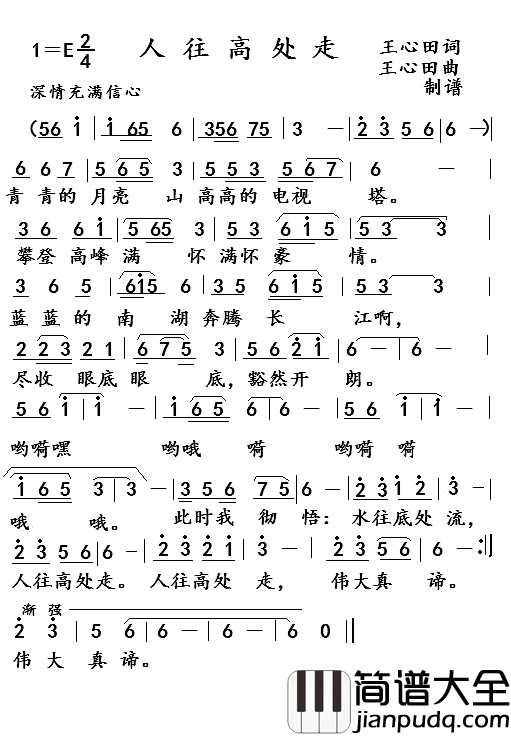 1=E 2/4 人往高处走 王心田词
王心田曲
深情充满信心 制谱
(56 1 | 1 65 6 | 356 75 | 3 - | 2 3 5 6 | 6 - )|
6 6 7 | 5 6 5 3 | 5 5 3 5 6 7 | 6 - |
青青的月亮 山高高的电视 塔。
3 6 6 1 | 5 65 3 | 5 3 3 6 1 5 | 5 3 3 |
攀登高峰满 怀满怀豪 情。
3 6 5 | 615 6 | 3 5 6 1 5 | 5 3 3 |
蓝蓝的南 湖奔腾长 江啊,
2 2 3 2 1 | 6 7 5 | 5 6 2 1 | 6 - | 6 - |
尽收眼底眼 底,豁然开 朗。
5 6 1 | 1 - | 1 6 5 6 | 6 - | 5 6 1 | 1 - |
哟嗬嘿 哟哦 嗬 哟嗬 嗬
1 6 5 3 | 3 - | 3 5 6 7 5 | 6 - | 2 3 1 2 | 3 - |
哦 哦。 此时我 彻 悟:水往底处流,
2 3 5 6 | 3 - | 2 3 2 1 | 3 - | 2 3 5 6 | 6 - :||
人往高处走。人往高处 走, 伟大真 谛。
渐 强
2 3 | 5 6 | 6 - | 6 - | 6 0 ||
伟大真谛。
简谱大全
jianpudq.com